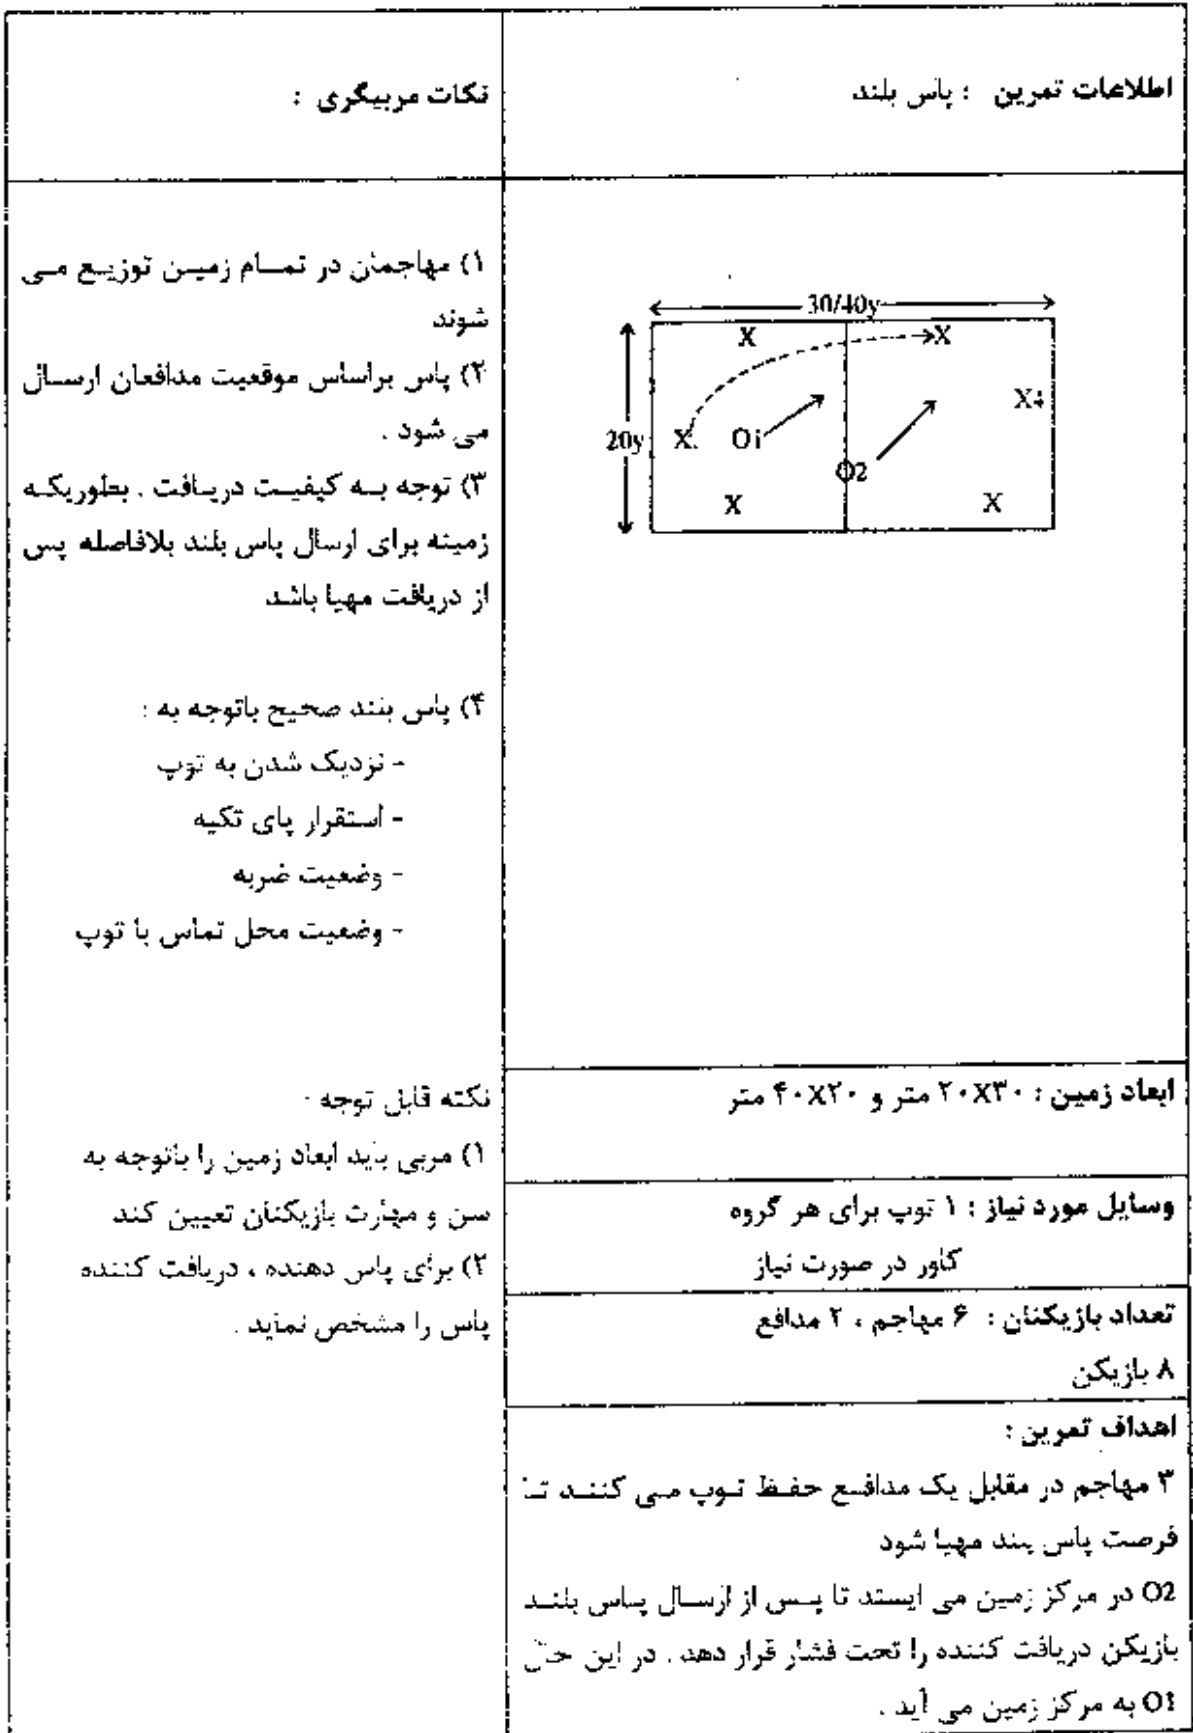 اطلاعات تمرین : پاس بلند
30/40y
X
X
X4
20y
X
O1
O2
X
X
ابعاد زمین : ۲۰X۳۰ متر و ۴۰X۲۰ متر
وسایل مورد نیاز : ۱ توپ برای هر گروه
کاور در صورت نیاز
تعداد بازیکنان : ۶ مهاجم ، ۲ مدافع
۸ بازیکن
اهداف تمرین :
۳ مهاجم در مقابل یک مدافع حفظ توپ می کنند تا
فرصت پاس بلند مهیا شود
O2 در مرکز زمین می ایستد تا پس از ارسال پاس بلند
بازیکن دریافت کننده را تحت فشار قرار دهد . در این حال
O1 به مرکز زمین می آید .
نکات مربیگری :
۱) مهاجمان در تمام زمین توزیع می
شوند
۲) پاس براساس موقعیت مدافعان ارسال
می شود .
۳) توجه به کیفیت دریافت . بطوریکه
زمینه برای ارسال پاس بلند بلافاصله پس
از دریافت مهیا باشد
۴) پاس بلند صحیح باتوجه به :
- نزدیک شدن به توپ
- استقرار پای تکیه
- وضعیت ضربه
- وضعیت محل تماس با توپ
نکته قابل توجه -
۱) مربی باید ابعاد زمین را باتوجه به
سن و مهارت بازیکنان تعیین کند
۲) برای پاس دهنده ، دریافت کننده
پاس را مشخص نماید .